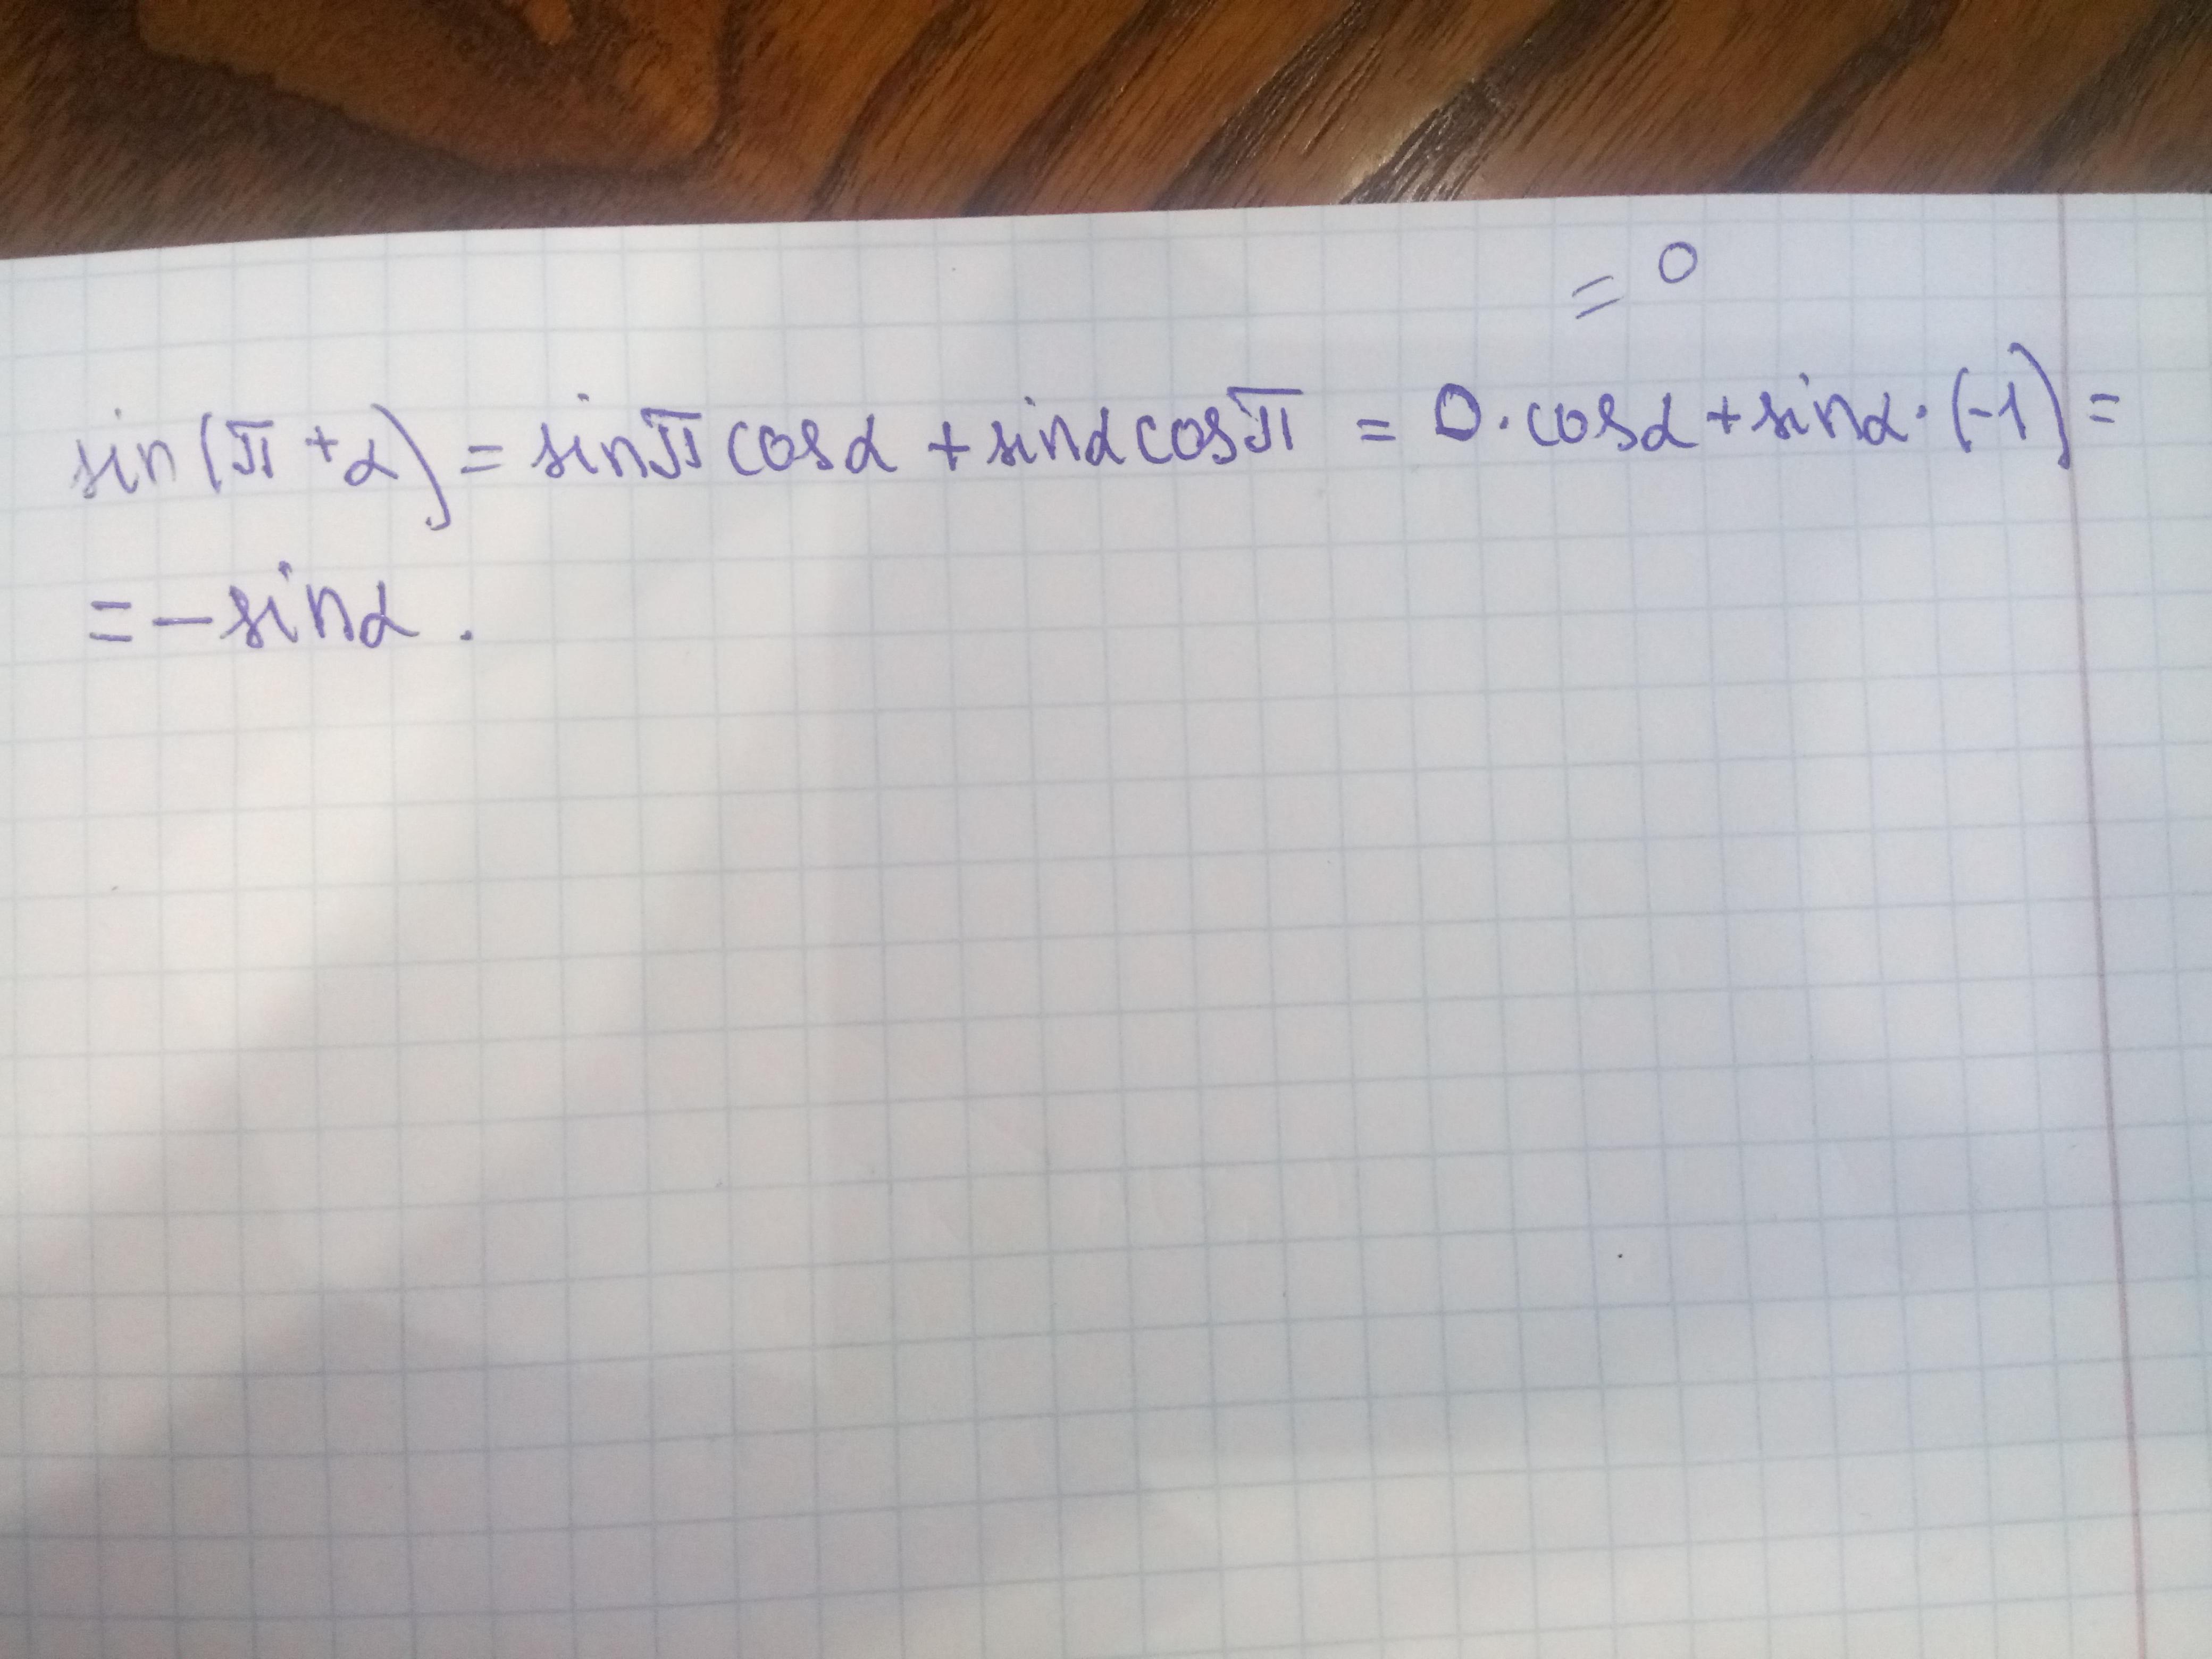 = 0
sin(π+α) = sinπ cosα + sinα cosπ = 0·cosα + sinα·(-1) =
= - sinα.